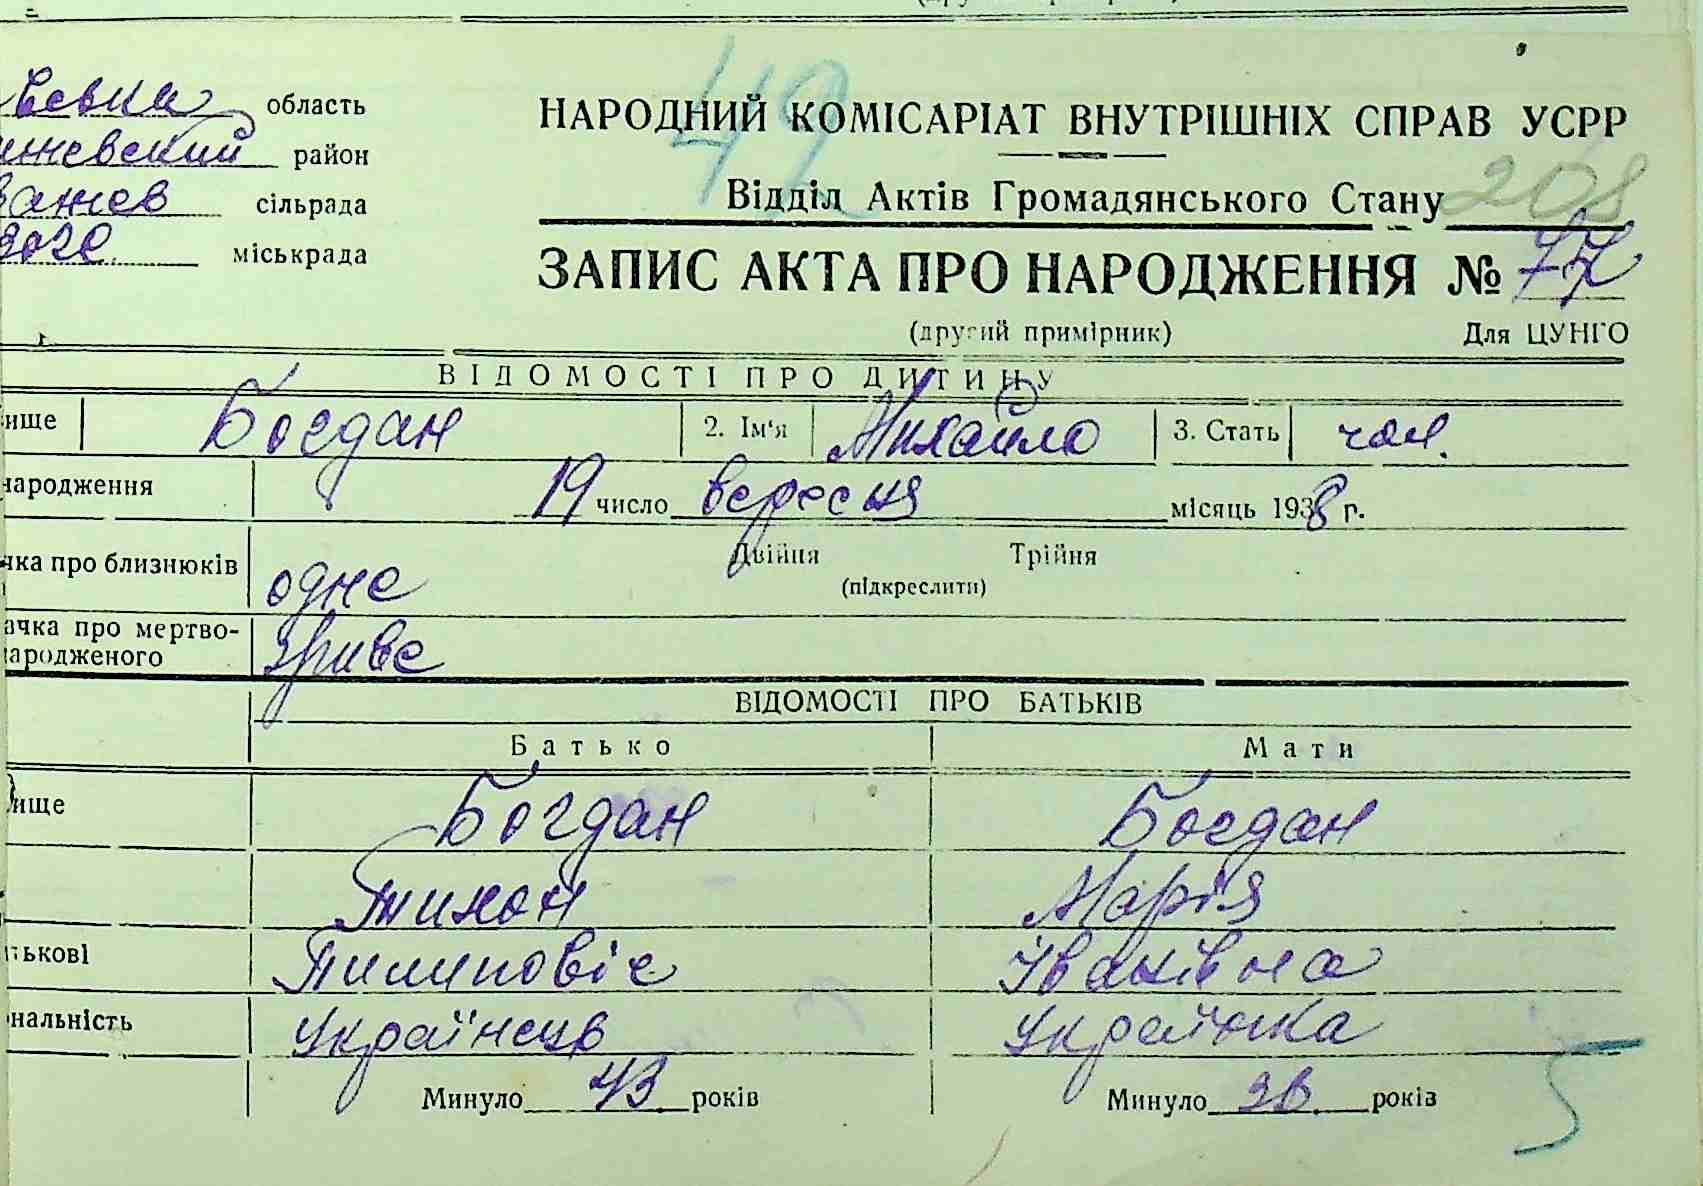 49
евка область
НАРОДНИЙ КОМІСАРІАТ ВНУТРІШНІХ СПРАВ УСРР
жевский район
Відділ Актів Громадянського Стану 208
ажев сільрада
міськрада
ЗАПИС АКТА ПРО НАРОДЖЕННЯ № 77
(другий примірник) Для ЦУНГО
ВІДОМОСТІ ПРО ДИТИНУ
ище Богдан 2. Ім'я Михайло 3. Стать чол.
народження 19 число вересня місяць 1938 г.
чка про близнюків одне Двійня Трійня
(підкреслити)
ачка про мертво-
народженого живе
ВІДОМОСТІ ПРО БАТЬКІВ
Батько Мати
ище Богдан Богдан
Тихон Марія
тькові Пилиповіч Іванівна
ональність Українець Українка
Минуло 43 років Минуло 36 років